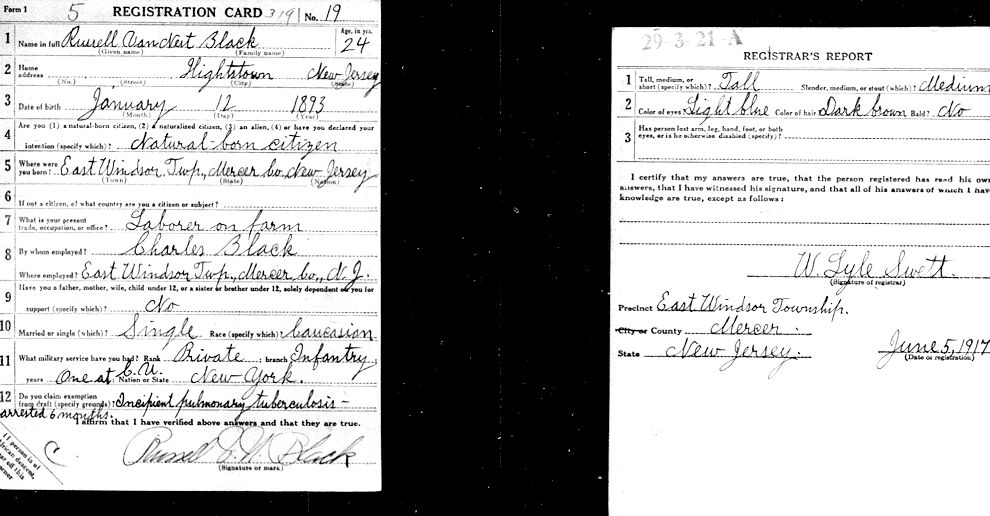 Form 1 5 REGISTRATION CARD 319 No. 19
1 Name in full Russell Van Nest Black Age, in yrs. 24
(Given name) (Family name)
2 Home address Hightstown New Jersey
(No.) (Street) (City) (State)
3 Date of birth January 12 1893
(Month) (Day) (Year)
4 Are you (1) a natural-born citizen, (2) a naturalized citizen, (3) an alien, (4) or have you declared your
intention (specify which)? Natural-born citizen
5 Where were you born? East Windsor Twp., Mercer Co., New Jersey
(Town) (State) (Nation)
6 If not a citizen, of what country are you a citizen or subject?
7 What is your present trade, occupation, or office? Laborer on farm
8 By whom employed? Charles Black
Where employed? East Windsor Twp., Mercer Co., N. J.
9 Have you a father, mother, wife, child under 12, or a sister or brother under 12, solely dependent on you for
support (specify which)? No
10 Married or single (which)? Single Race (specify which)? Caucasian
11 What military service have you had? Rank Private ; branch Infantry ;
years One at C.U. ; Nation or State New York.
12 Do you claim exemption from draft (specify grounds)? Incipient pulmonary tuberculosis -
arrested 6 months.
I affirm that I have verified above answers and that they are true.
Russell V. N. Black
(Signature or mark)
If person is of
African descent,
tear off this
corner
29-3-21-A
REGISTRAR'S REPORT
1 Tall, medium, or short (specify which)? Tall Slender, medium, or stout (which)? Medium
2 Color of eyes? Light blue Color of hair? Dark brown Bald? No
3 Has person lost arm, leg, hand, foot, or both
eyes, or is he otherwise disabled (specify)?
I certify that my answers are true, that the person registered has read his own
answers, that I have witnessed his signature, and that all of his answers of which I have
knowledge are true, except as follows:
W. Lyle Swett.
(Signature of registrar)
Precinct East Windsor Township.
City or County Mercer.
State New Jersey. June 5, 1917
(Date of registration)